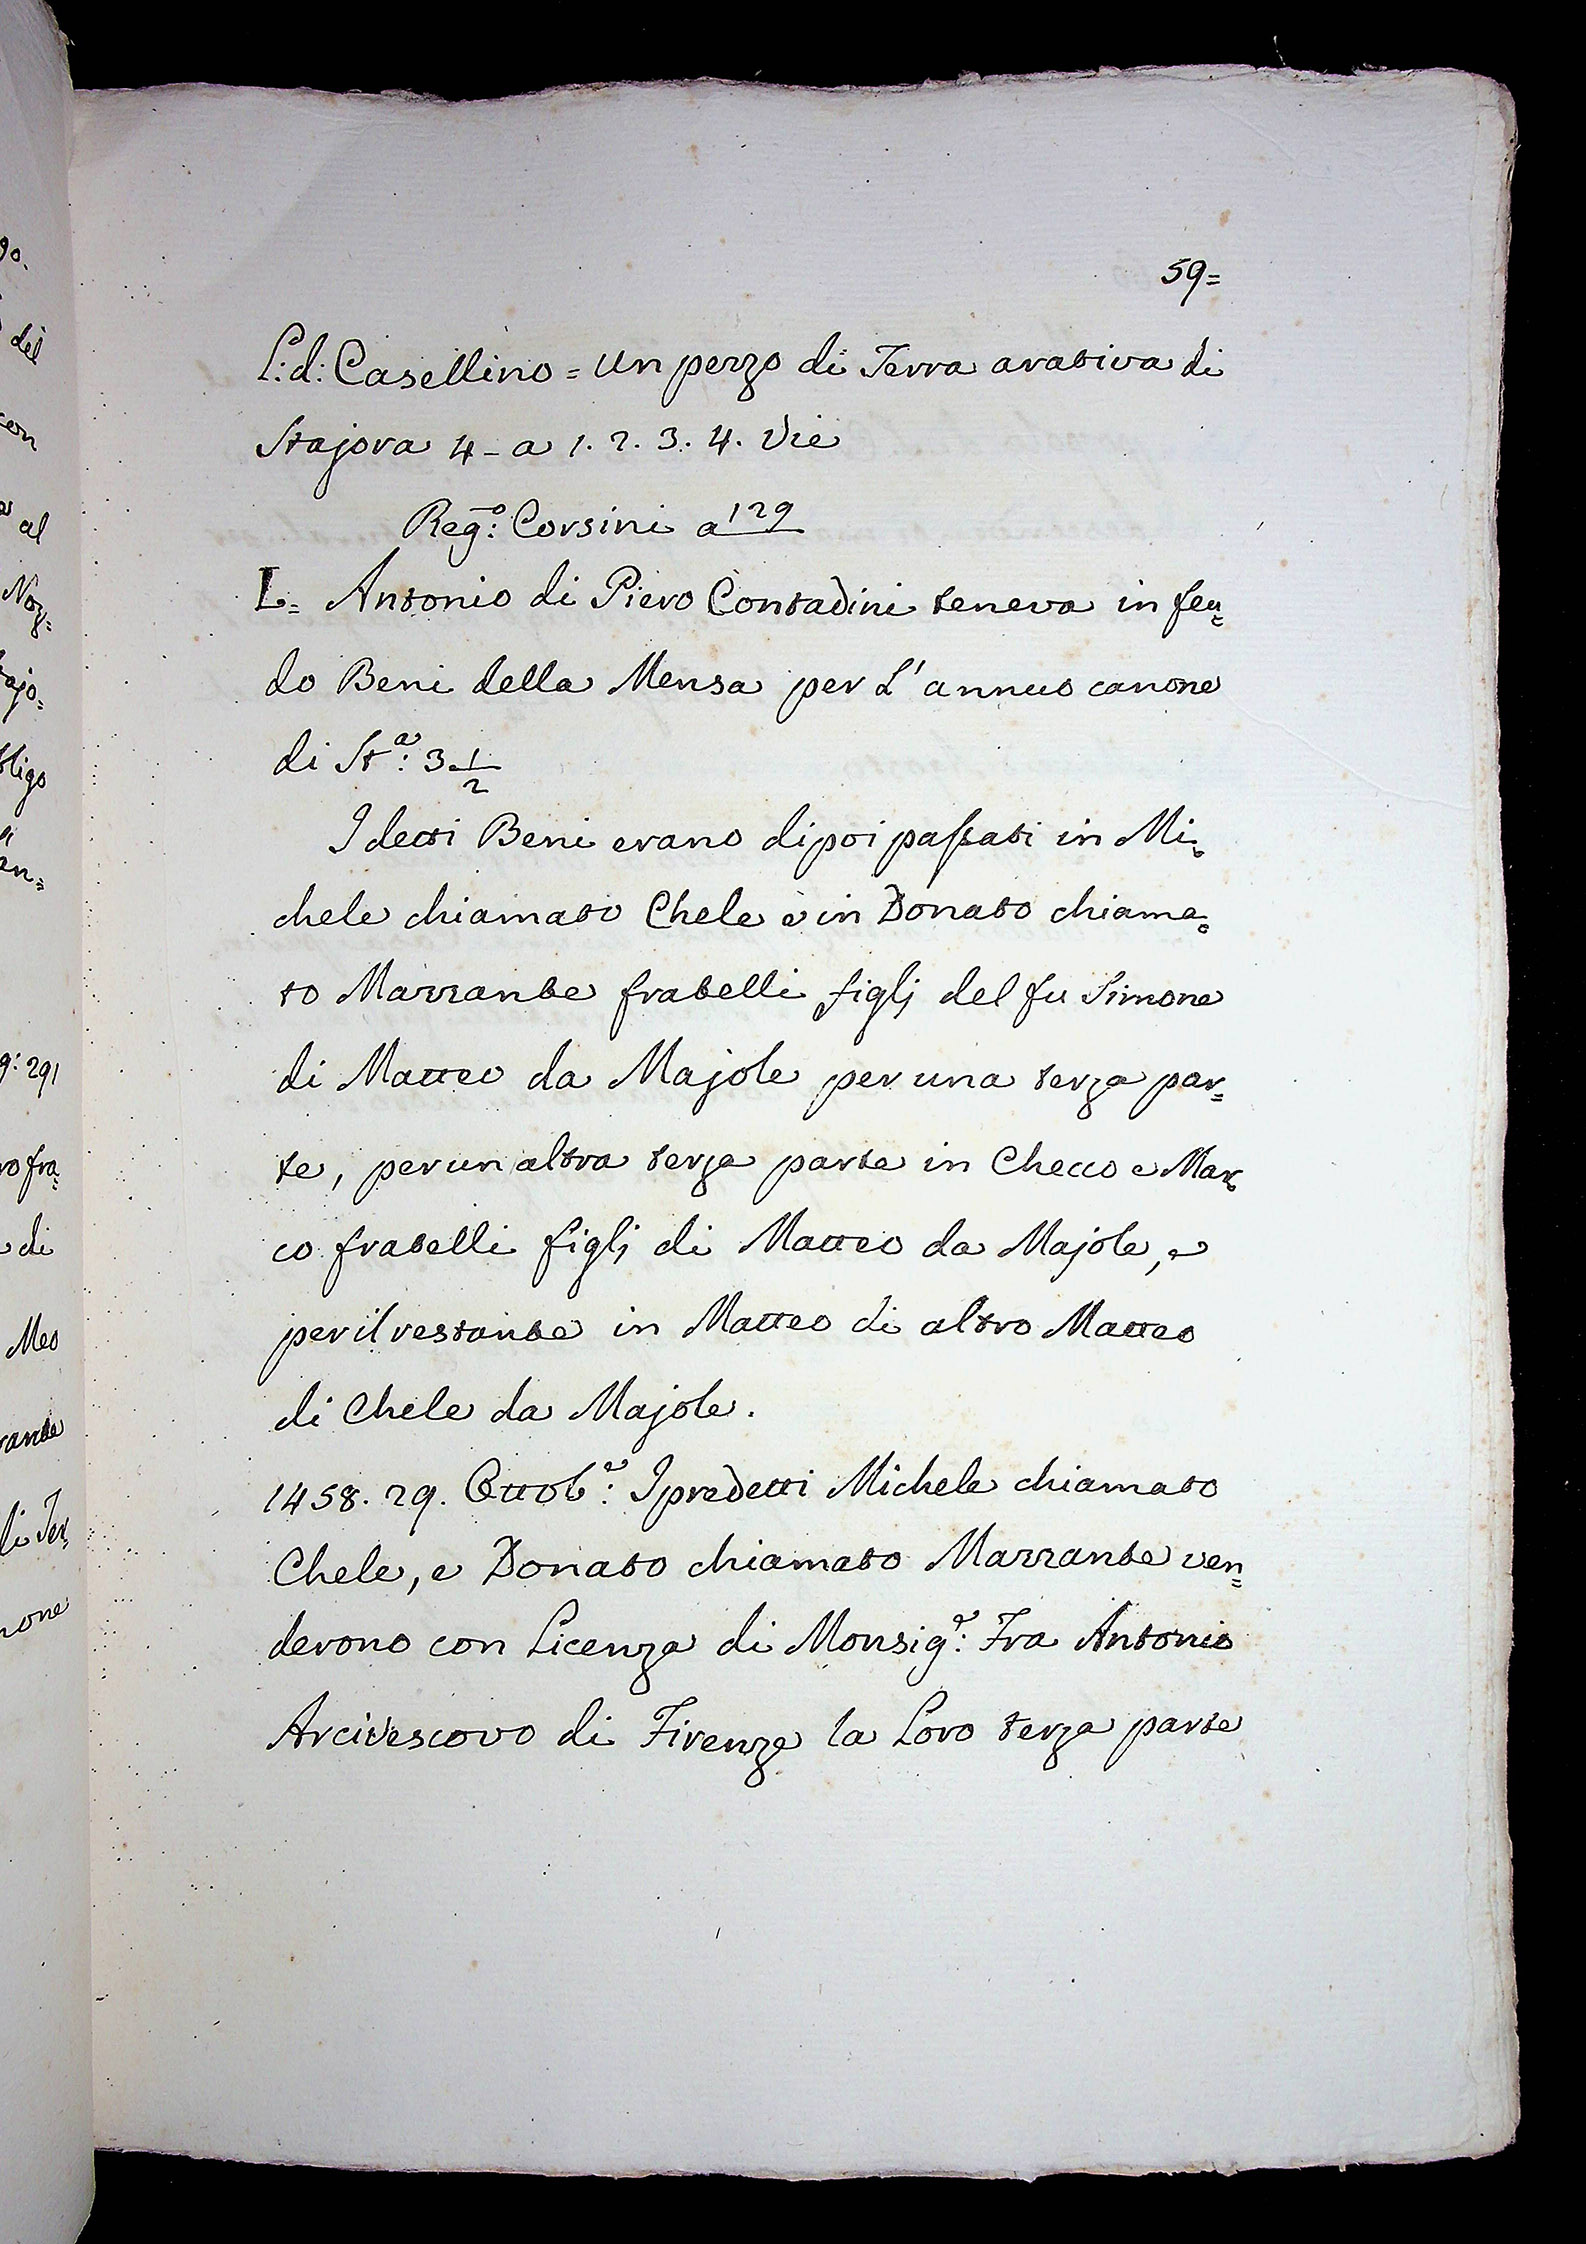 59=
L: d: Casellino = un pezzo di Terra arativa di
Stajora 4 - a 1. 2. 3. 4. Vie
Reg.o: Corsini a 129
L= Antonio di Piero Contadini teneva in feu=
do Beni della Mensa per L' annuo canone
di St.a: 3 1/2
I detti Beni erano dipoi passati in Mi=
chele chiamato Chele e in Donato chiama=
to Marzante fratelli figlj del fu Simone
di Matteo da Majole per una terza par=
te, per un altra terza parte in Checco e Mar=
co fratelli figlj di Matteo da Majole, e
per il restante in Matteo di altro Matteo
di Chele da Majole.
1458. 29. Ottob.e: I predetti Michele chiamato
Chele, e Donato chiamato Marzante ven=
derono con Licenza di Monsig.e: Fra Antonio
Arcivescovo di Firenze la Loro terza parte
del
con
al
Noz=
ajo=
bligo
en=
g: 291
ro fra=
e di
Meo
rante
di Ter=
none